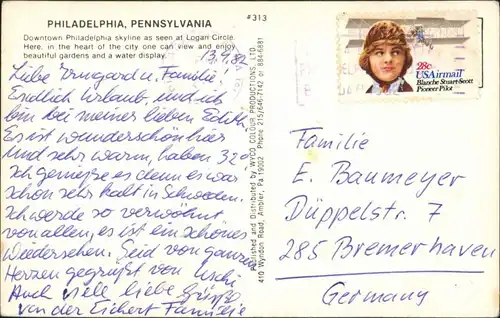 PHILADELPHIA, PENNSYLVANIA
#313
Downtown Philadelphia skyline as seen at Logan Circle.
Here, in the heart of the city one can view and enjoy
beautiful gardens and a water display.
13.9.82
Liebe Irmgard u. Familie,
Endlich Urlaub, und ich
bin bei meiner lieben Edith
Es ist wunderschön hier
Und sehr warm, haben 32°
Ich geniesse es denn es war
schon sehr kalt in Schweden.
Ich werde so verwöhnt
von allen, es ist ein schönes
Wiedersehen. Seid von ganzem
Herzen gegrüßt von Uschi.
Auch viele liebe Grüße
von der Eichert Familie
Published and Distributed by WYCO COLOUR PRODUCTIONS, LTD.
410 Wyndon Road, Ambler, Pa 19002 Phone 215/646-7142 or 884-6881
28c
USAirmail
Blanche Stuart Scott
Pioneer Pilot
Familie
E. Baumeyer
Düppelstr. 7
285 Bremerhaven
Germany